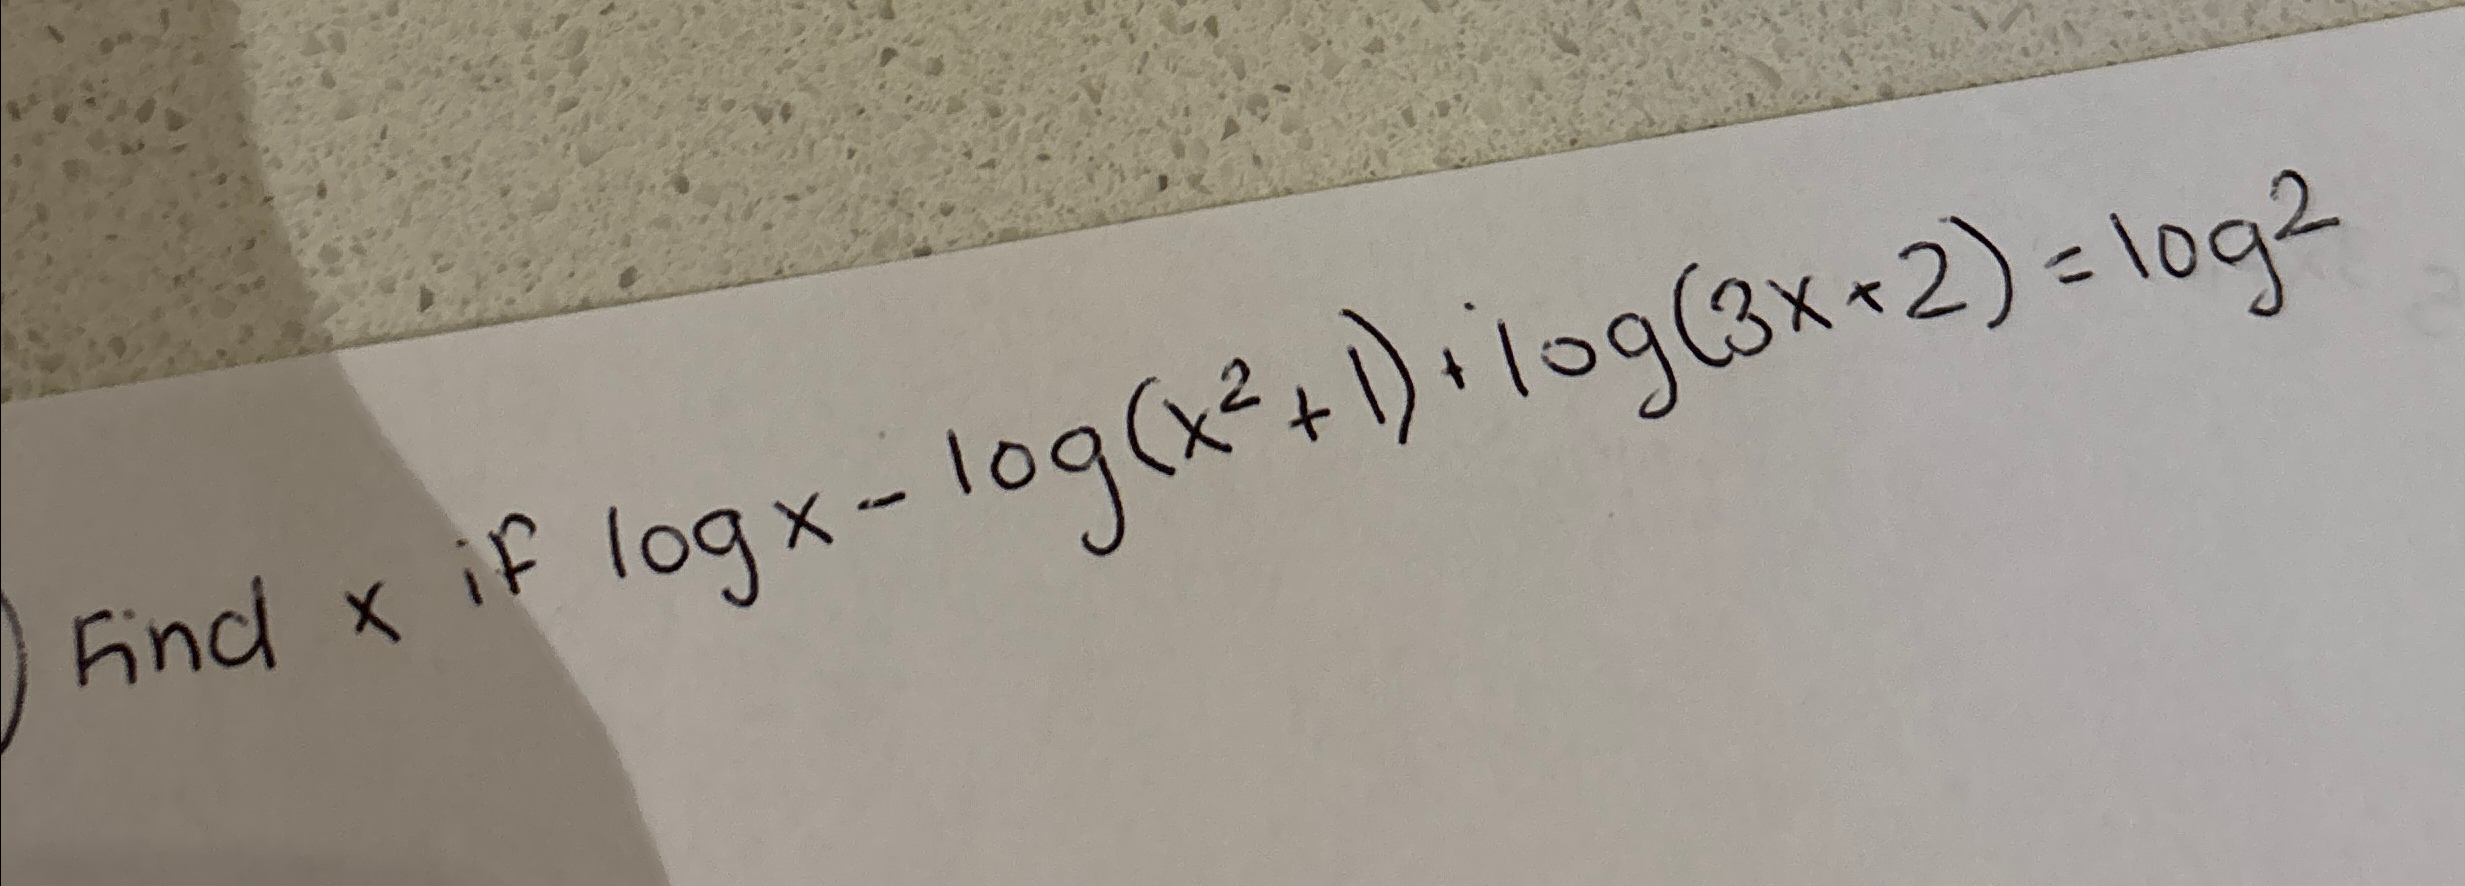 ) Find x if log x - log(x² + 1) + log(3x + 2) = log 2